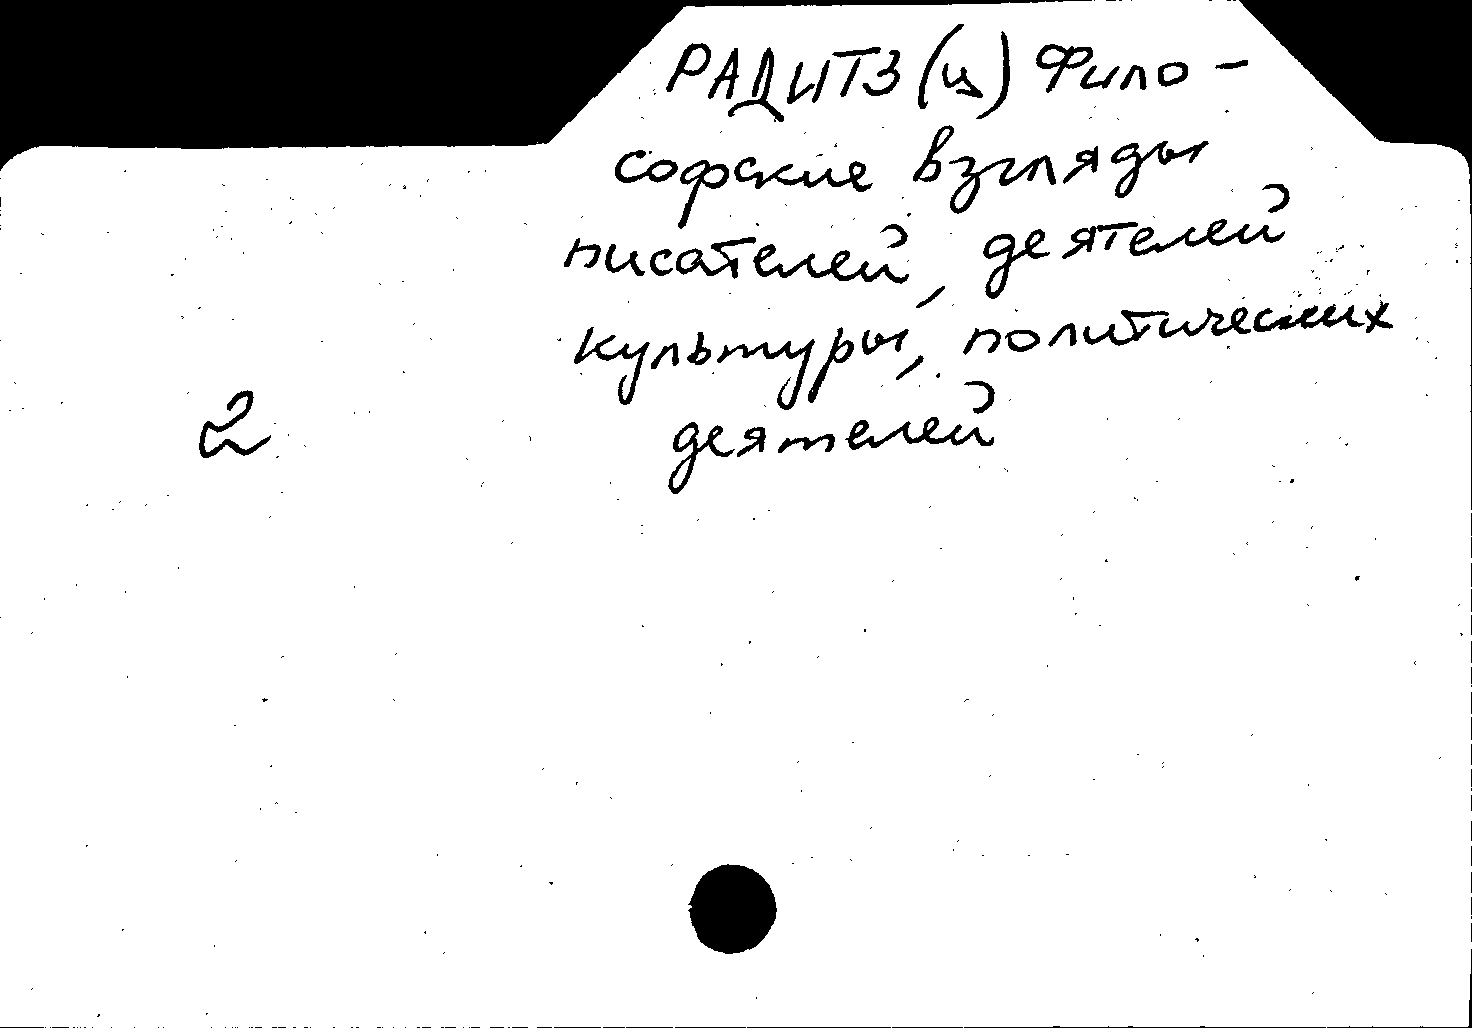 РАДИТЗ (ц) Фило-
софские взгляды
писателей, деятелей
культуры, политических
2
деятелей